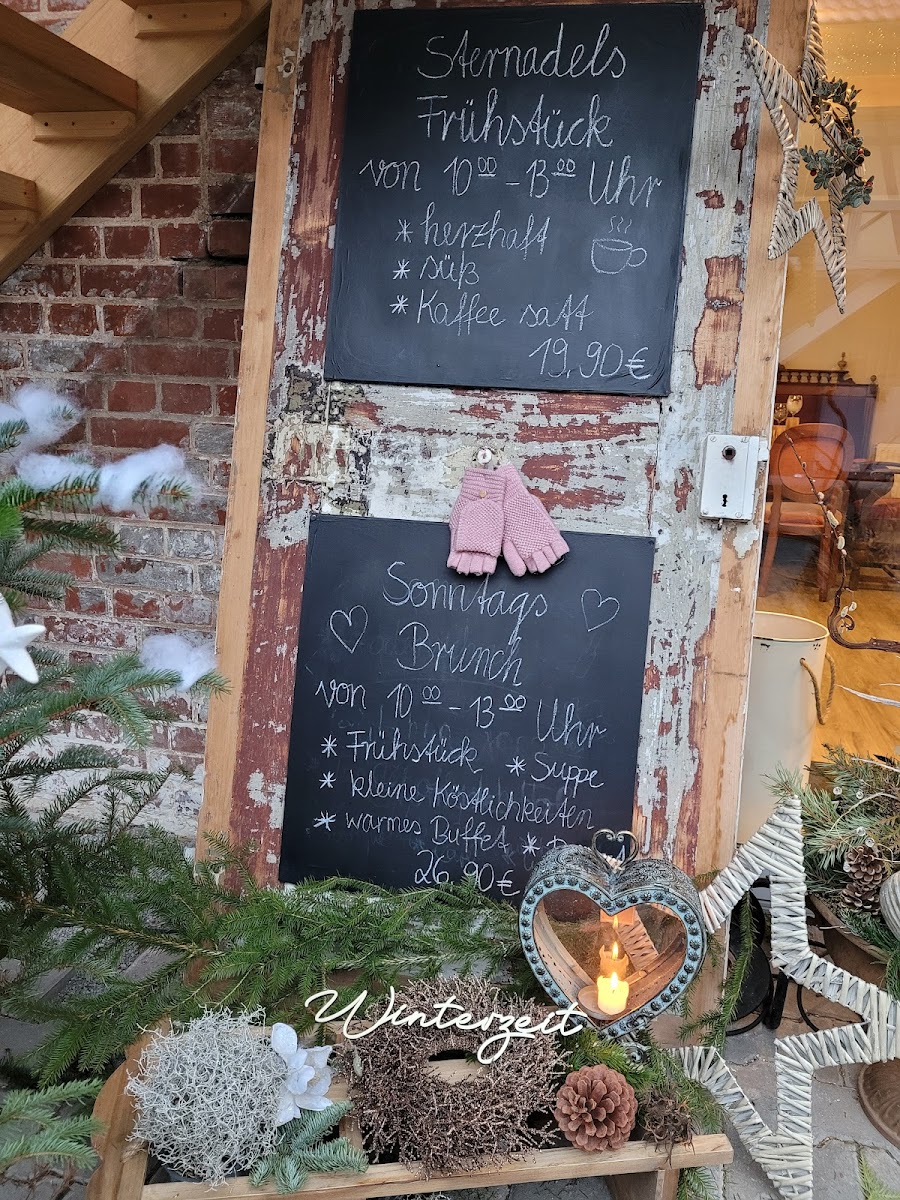 Sternadels
Frühstück
von 10⁰⁰ - 13⁰⁰ Uhr
* herzhaft
* süß
* Kaffee satt
19,90€
Sonntags
Brunch
von 10⁰⁰ - 13⁰⁰ Uhr
* Frühstück * Suppe
* kleine Köstlichkeiten
* warmes Buffet *
26,90€
Winterzeit